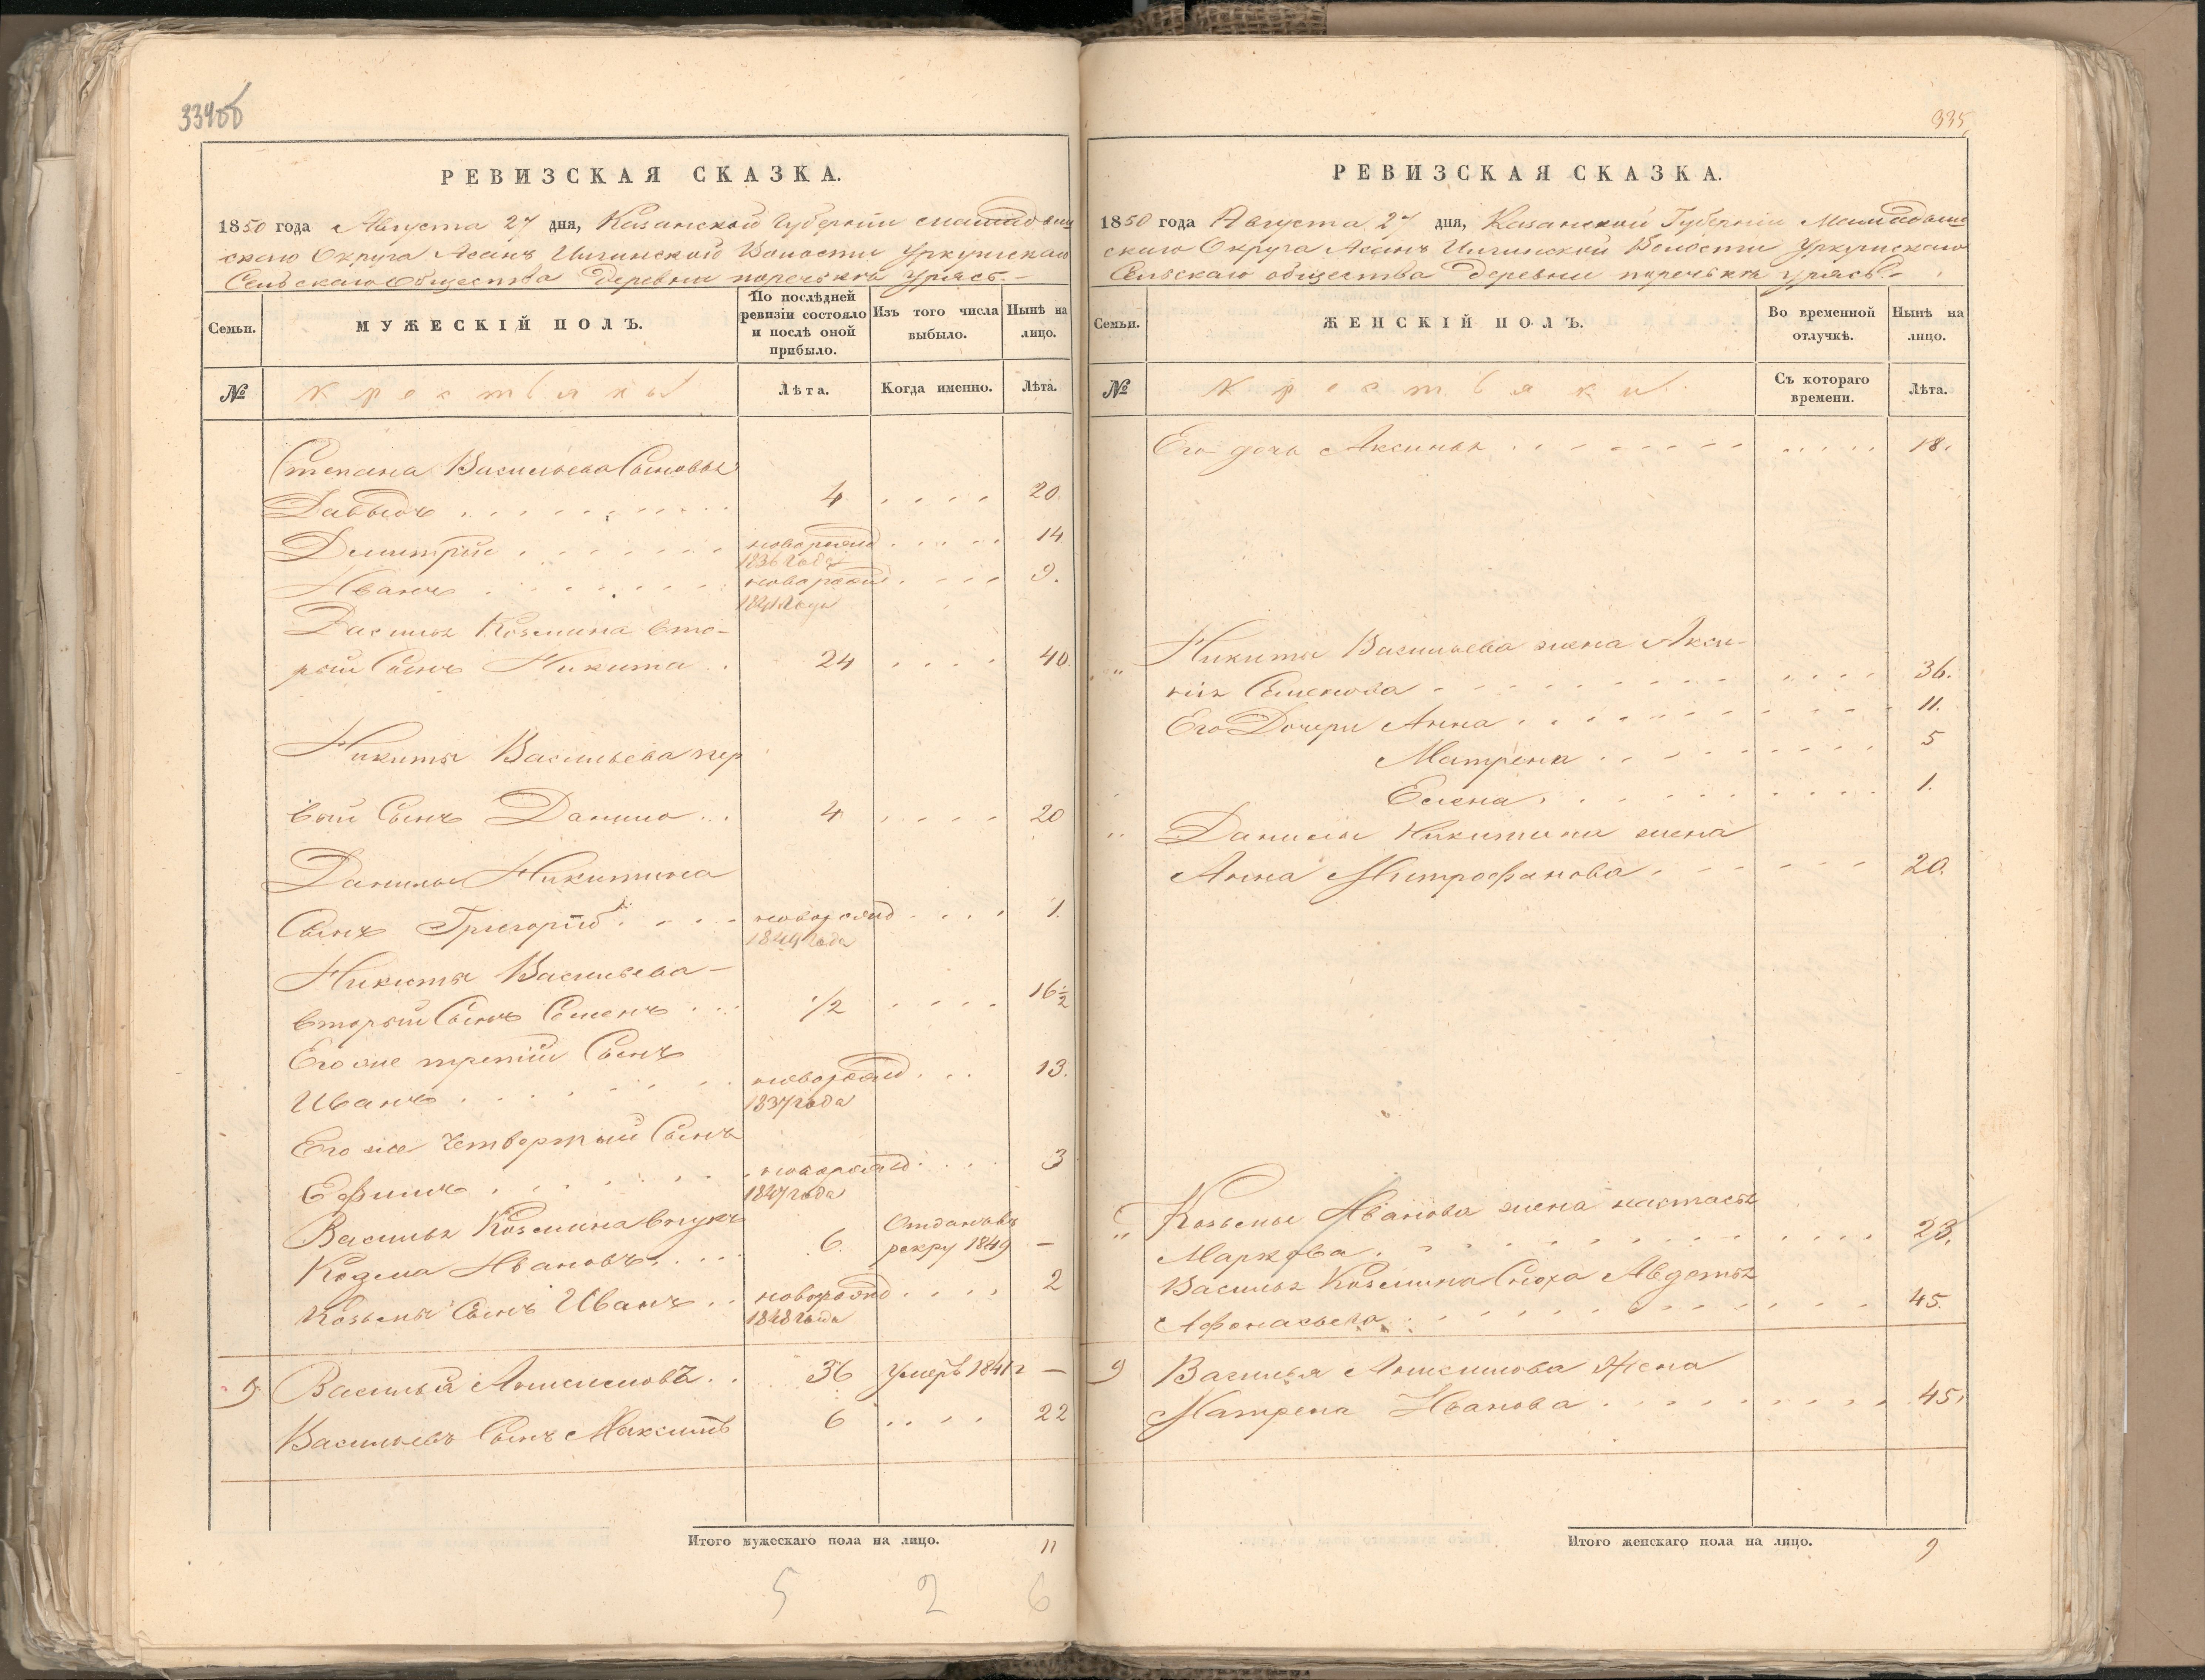 334об
РЕВИЗСКАЯ СКАЗКА.
1850 года Августа 27 дня, Казанской Губерніи Мамадыш
скаго Округа Асанъ Илгинской Волости Уркушскаго
Сельскаго Общества Деревни поречькъ Урясъ.-
Семьи.
МУЖЕСКІЙ ПОЛЪ.
По послѣдней ревизіи состояло и послѣ оной прибыло.
Изъ того числа выбыло.
Нынѣ на лицо.
№
крестьяны
Лѣта.
Когда именно.
Лѣта.
Степана Васильева Сыновья
Давыдъ 4 20
Дмитрій новорожд 14
1836 года
Иванъ новорожд 9.
1841 года
Василья Козмина вто-
рой Сынъ Никита 24 40
Никиты Васильева пер
вый Сынъ Данило 4 20
Данилы Никитина
Сынъ Григорій новорожд 1.
1849 года
Никиты Васильева-
вторый Сынъ Семенъ 1/2 16 1/2
Его же третій Сынъ
Иванъ новорожд 13.
1837 года
Его же Четвертый Сынъ
Ефимъ новорожд 3
1847 года
Василья Козмина внукъ
Козма Ивановъ 6. Отдан въ рекру 1849 -
Козьмы Сынъ Иванъ новорожд 2
1848 года
9 Василий Анисимовъ 36 Умеръ 1841 г -
Васильевъ Сынъ Максимъ 6 22
Итого мужескаго пола на лицо. 11
5 2 6
335
РЕВИЗСКАЯ СКАЗКА.
1850 года Августа 27 дня, Казанской Губерніи Мамадыш
скаго Округа Асанъ Илгинской Волости Уркушскаго
Сельскаго общества деревни поречькъ урясъ-
Семьи.
ЖЕНСКІЙ ПОЛЪ.
Во временной отлучкѣ.
Нынѣ на лицо.
№
крестьяки
Съ котораго времени.
Лѣта.
Его дочь Аксинья 18.
" Никиты Васильева жена Акси-
нія Семенова 36.
Его Дочери Анна 11.
Матрена 5
Елена 1.
" Данилы Никитина жена
Анна Митрофанова 20.
" Козьмы Иванова жена настасья
Маркова 23.
Василья Козмина Сноха Авдотья
Афонасьева 45.
9 Василья Анисимова Жена
Матрена Иванова 45.
Итого женскаго пола на лицо. 9